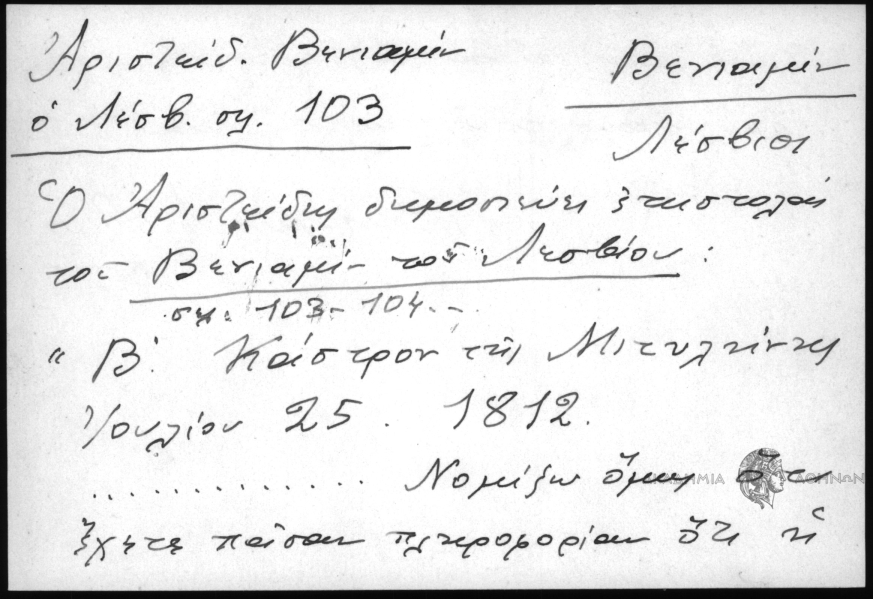 Ἀριστείδ. Βενιαμὶν
ὁ Λέσβ. σελ. 103
Βενιαμὶν
Λέσβιοι
Ὁ Ἀριστείδης δημοσιεύει ἐπιστολὰς
τοῦ Βενιαμὶν τοῦ Λεσβίου :
σελ. 103-104.-
“ Β'. Κάστρον τῆς Μιτυλήνης
Ἰουλίου 25. 1812.
.............. Νομίζω ὅμως ὅτι
ΑΘΗΝΩΝ
ἔχετε πᾶσαν πληροφορίαν ὅτι ἡ